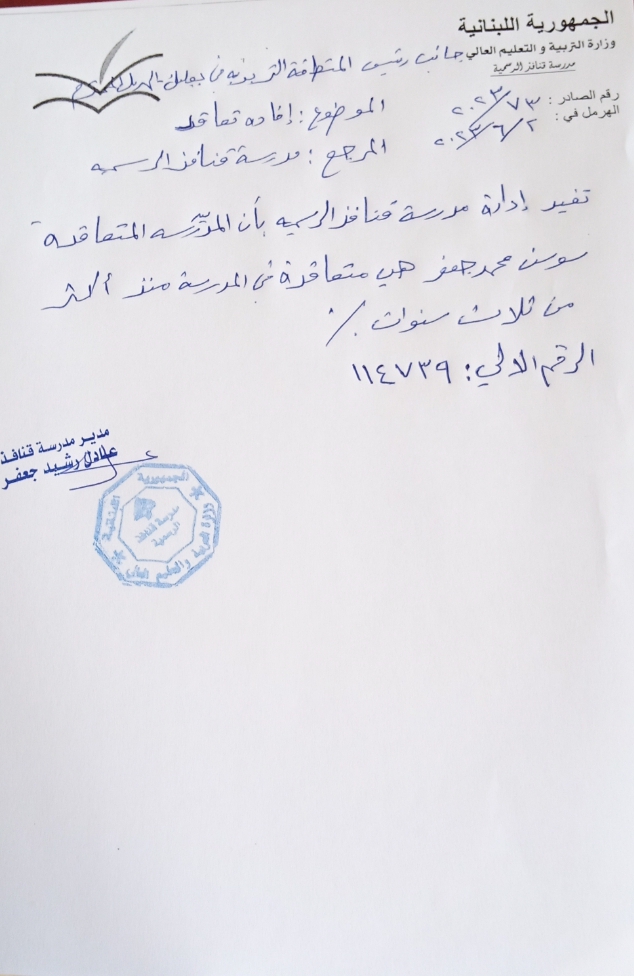 الجمهورية اللبنانية
وزارة التربية و التعليم العالي
مدرسة قنافز الرسمية
رقم الصادر : ٢٠٢٣/٧٣
الهرمل في : ٢٠٢٣/٦/٢
جانب رئيس المنطقة التربوية في بعلبك - الهرمل المحترم
الموضوع : إفادة تعاقد
المرجع : مدرسة قنافذ الرسميه
تفيد إدارة مدرسة قنافذ الرسميه بأن المدرّسه المتعاقدة
سوسن محمد جعفر هي متعاقدة في المدرسة منذ أكثر
من ثلاث سنوات ./
الرقم الالي : ١١٤٧٣٩
مدير مدرسة قنافذ
عادل رشيد جعفر
الجمهورية اللبنانية
وزارة التربية والتعليم العالي
مدرسة قنافذ
الرسمية